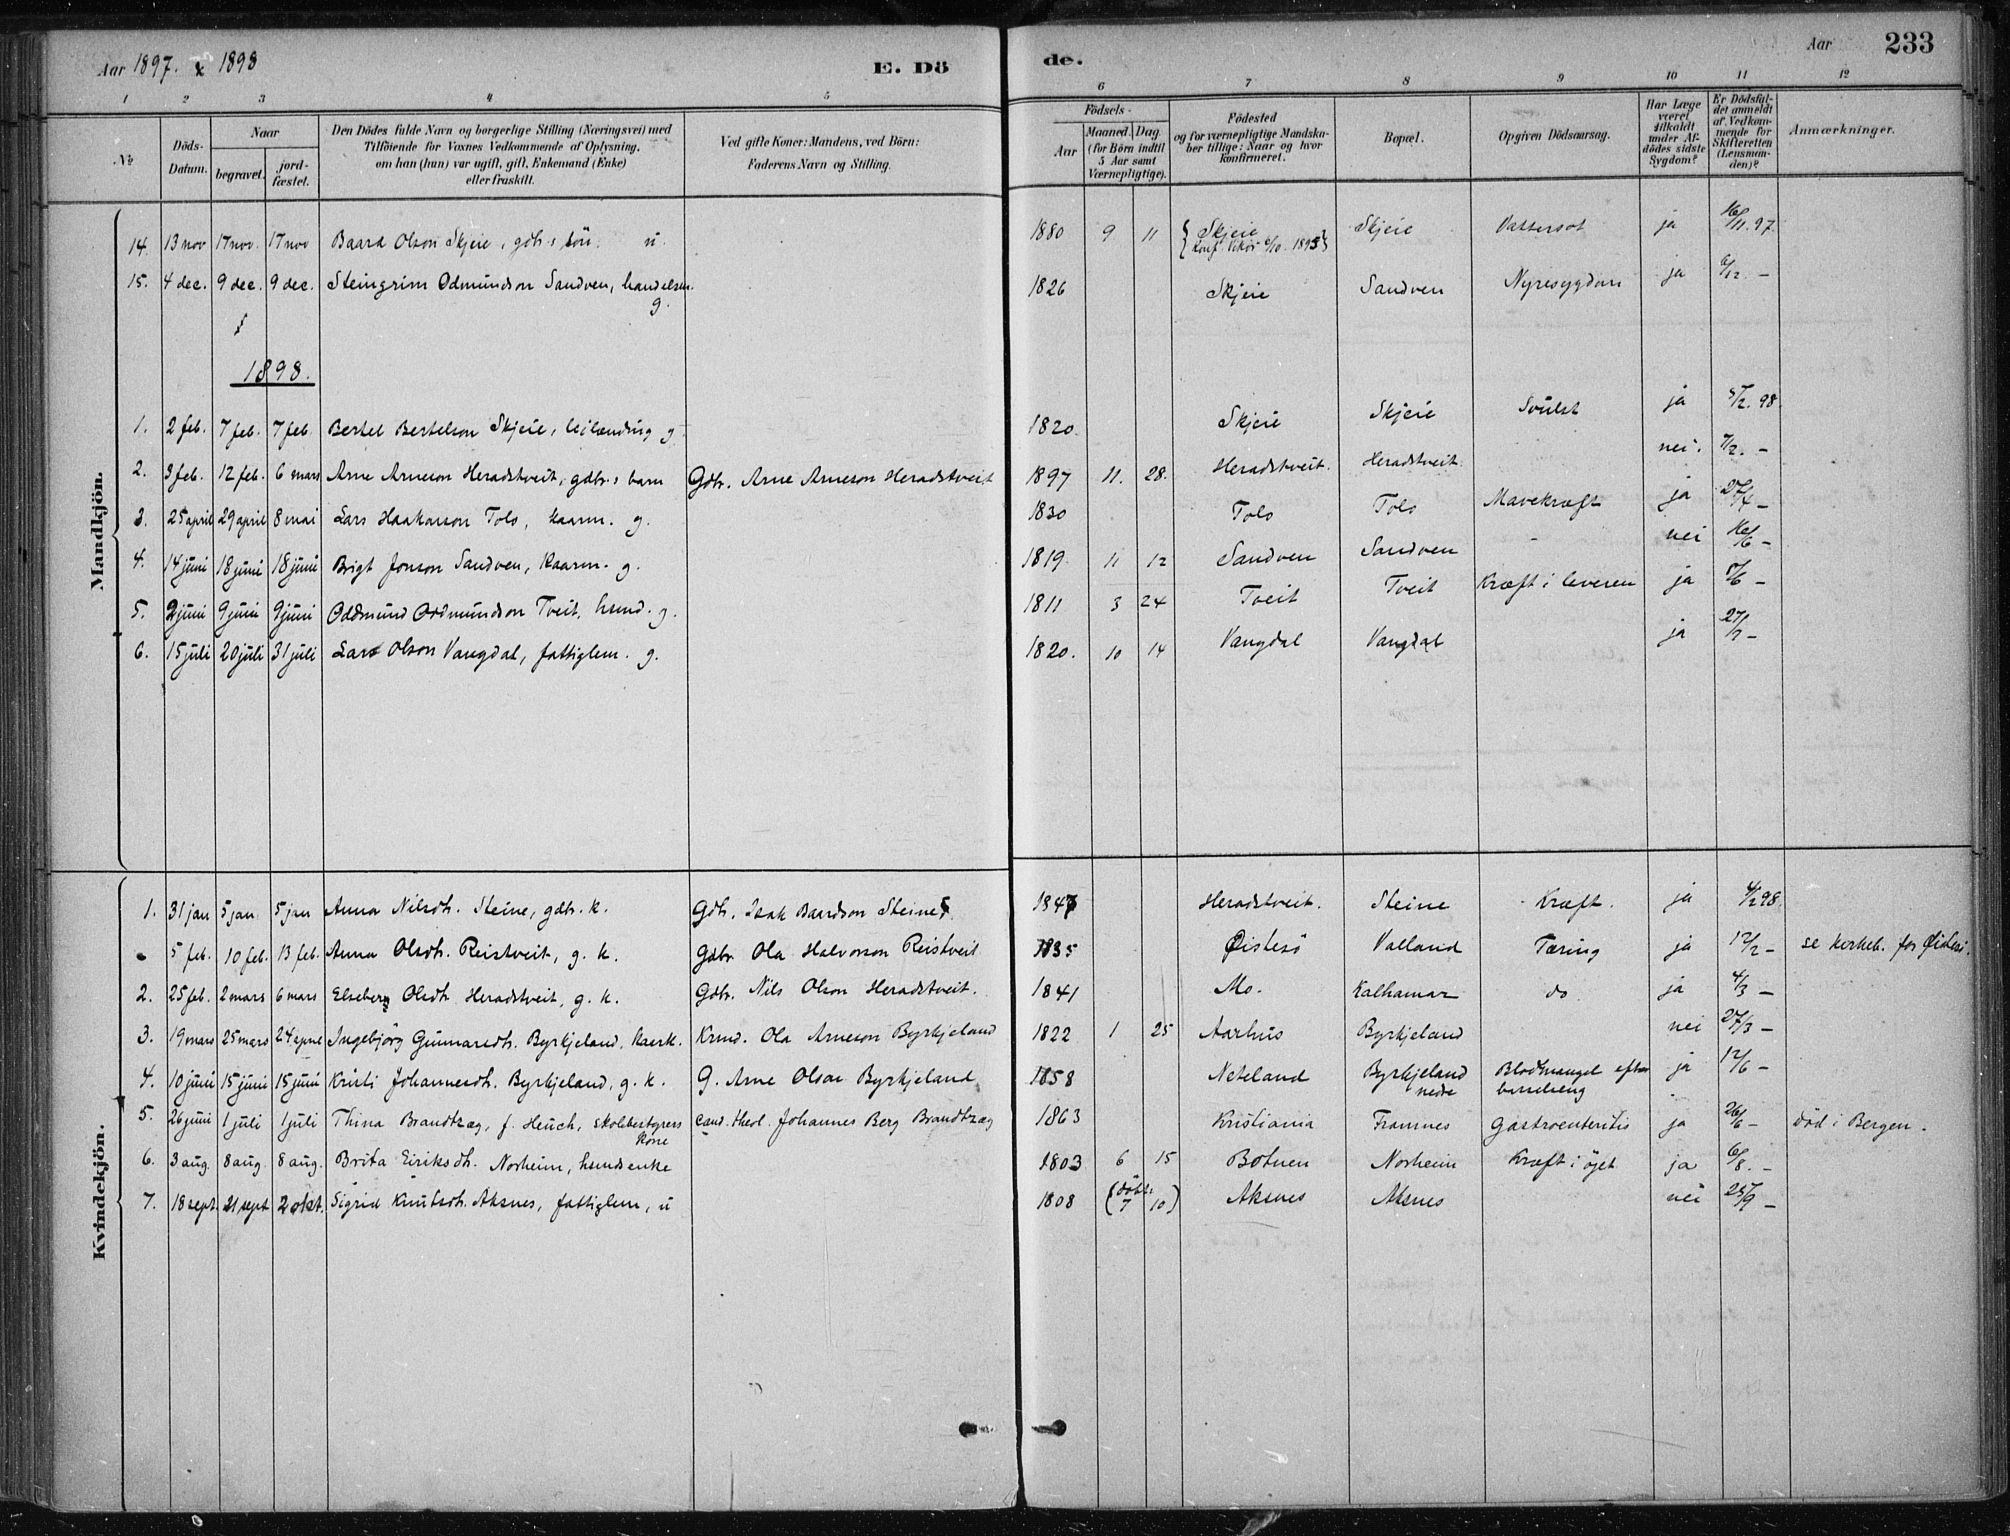 Aar 1897. & 1898
E. Dö
de.
Aar
233
1 2 3 4 5 6 7 8 9 10 11 12
No
Döds-Datum.
Naar
begravet.
jord-fæstet.
Den Dödes fulde Navn og borgerlige Stilling (Næringsvei) med
Tilföiende for Voxnes Vedkommende af Oplysning,
om han (hun) var ugift, gift, Enkemand (Enke)
eller fraskilt.
Ved gifte Koner: Mandens, ved Börn:
Faderens Navn og Stilling.
Födsels-
Aar
Maaned. Dag.
(for Börn indtil
5 Aar samt
Værnepligtige).
Födested
og for værnepligtige Mandska-
ber tillige: Naar og hvor
konfirmeret.
Bopæl.
Opgiven Dödsaarsag.
Har Læge
været
tilkaldt
under Af-
dödes sidste
Sygdom?
Er Dödsfal-
det anmeldt
af Vedkom-
mende for
Skifteretten
(Lensman-
den)?
Anmærkninger.
Mandkjön.
14. 13 nov 17 nov. 17 nov Baard Olson Skjeie, gdb.s sön. u. 1880 9 11 Skjeie Skjeie Vattersot ja 16/11. 97.
Konf. Vikör
15. 4 dec. 9 dec. 9 dec. Steingrim Odmundson Sandven, handelsm. 1826 Skjeie Sandven Nyresygdom ja 6/12. —
g.
1898.
1. 2 feb. 7 feb. 7 feb. Bertel Bertelson Skjeie, leilænding g 1820. Skjeie Skjeie Svulst ja 5/2. 98.
2. 3 feb. 12 feb. 6 mars Arne Arneson Heradstveit, gdbr.s barn Gdbr. Arne Arneson Heradstveit 1897 11. 28. Heradstveit. Heradstveit nei. 7/2. —
3. 25 april 29 april 8 mai Lars Haakanson Tolo, kaarm. g. 1830 Tolo Tolo Mavekræft ja 27/4 —
4. 14 juni 18 juni 18 juni Brigt Jonson Sandven, kaarm. g. 1819 11 12 Sandven Sandven - nei 16/6 —
5. 2 juni 9 juni 9 juni Oddmund Oddmundson Tveit, husmd. g. 1811 3 24 Tveit Tveit Kræft i leveren ja 7/6 —
6. 15 juli 20 juli 31 juli Lars Olson Vangdal, fattiglem. g. 1820. 10 14 Vangdal Vangdal ja 27/7 —
Kvindekjön.
1. 31 jan 5 jan 5 jan Anna Nilsdh. Steine, gdb. k. Gdb. Isak Baardson Steine 1847 Heradstveit. Steine Kræft. ja 4/2 98.
5 feb. 10 feb. 13 feb. Anna Olsdh. Reistveit, g. k. Gdbr. Ola Halvorson Reistveit 1835 Øistesö Valland Tæring ja 12/2 — se kirkeb. for Øistesö.
2. 25 feb. 2 mars 6 mars Elseberg Olsdh. Heradstveit, g. k. Gdbr. Nils Olson Heradstveit. 1841 Mo. Kalhamar do ja 4/3 —
3. 19 mars 25 mars 24 april Ingebjörg Gunnarsdh. Byrkjeland, kaark. Krmd. Ola Arneson Byrkjeland 1822 1 25 Aarhus Byrkjeland nei 27/3 —
4. 10 juni 15 juni 15 juni Kristi Johannesdh. Byrkjeland, g. k. G. Arne Olson Byrkjeland 1858 Neteland Byrkjeland Blodmangel efter ja 12/6 —
nedre barselseng
5. 26 juni 1 juli 1 juli Thina Brandtzæg, f. Heuch, skolebestyrers cand. theol. Johannes Berg Brandtzæg 1863 Kristiania Framnes Gastroenteritis ja 26/6 — Död i Bergen.
kone
6. 3 aug. 8 aug. 8 aug. Brita Eiriksdh. Norheim, husmdsenke 1803 6 15 Botnen Norheim Kræft i öjet ja 6/8. —
7. 18 sept. 21 sept 2 okt. Sigrid Knutsdh. Aksnes, fattiglem, u 1808 (döbt 7 10) Aksnes Aksnes nei 25/9 —